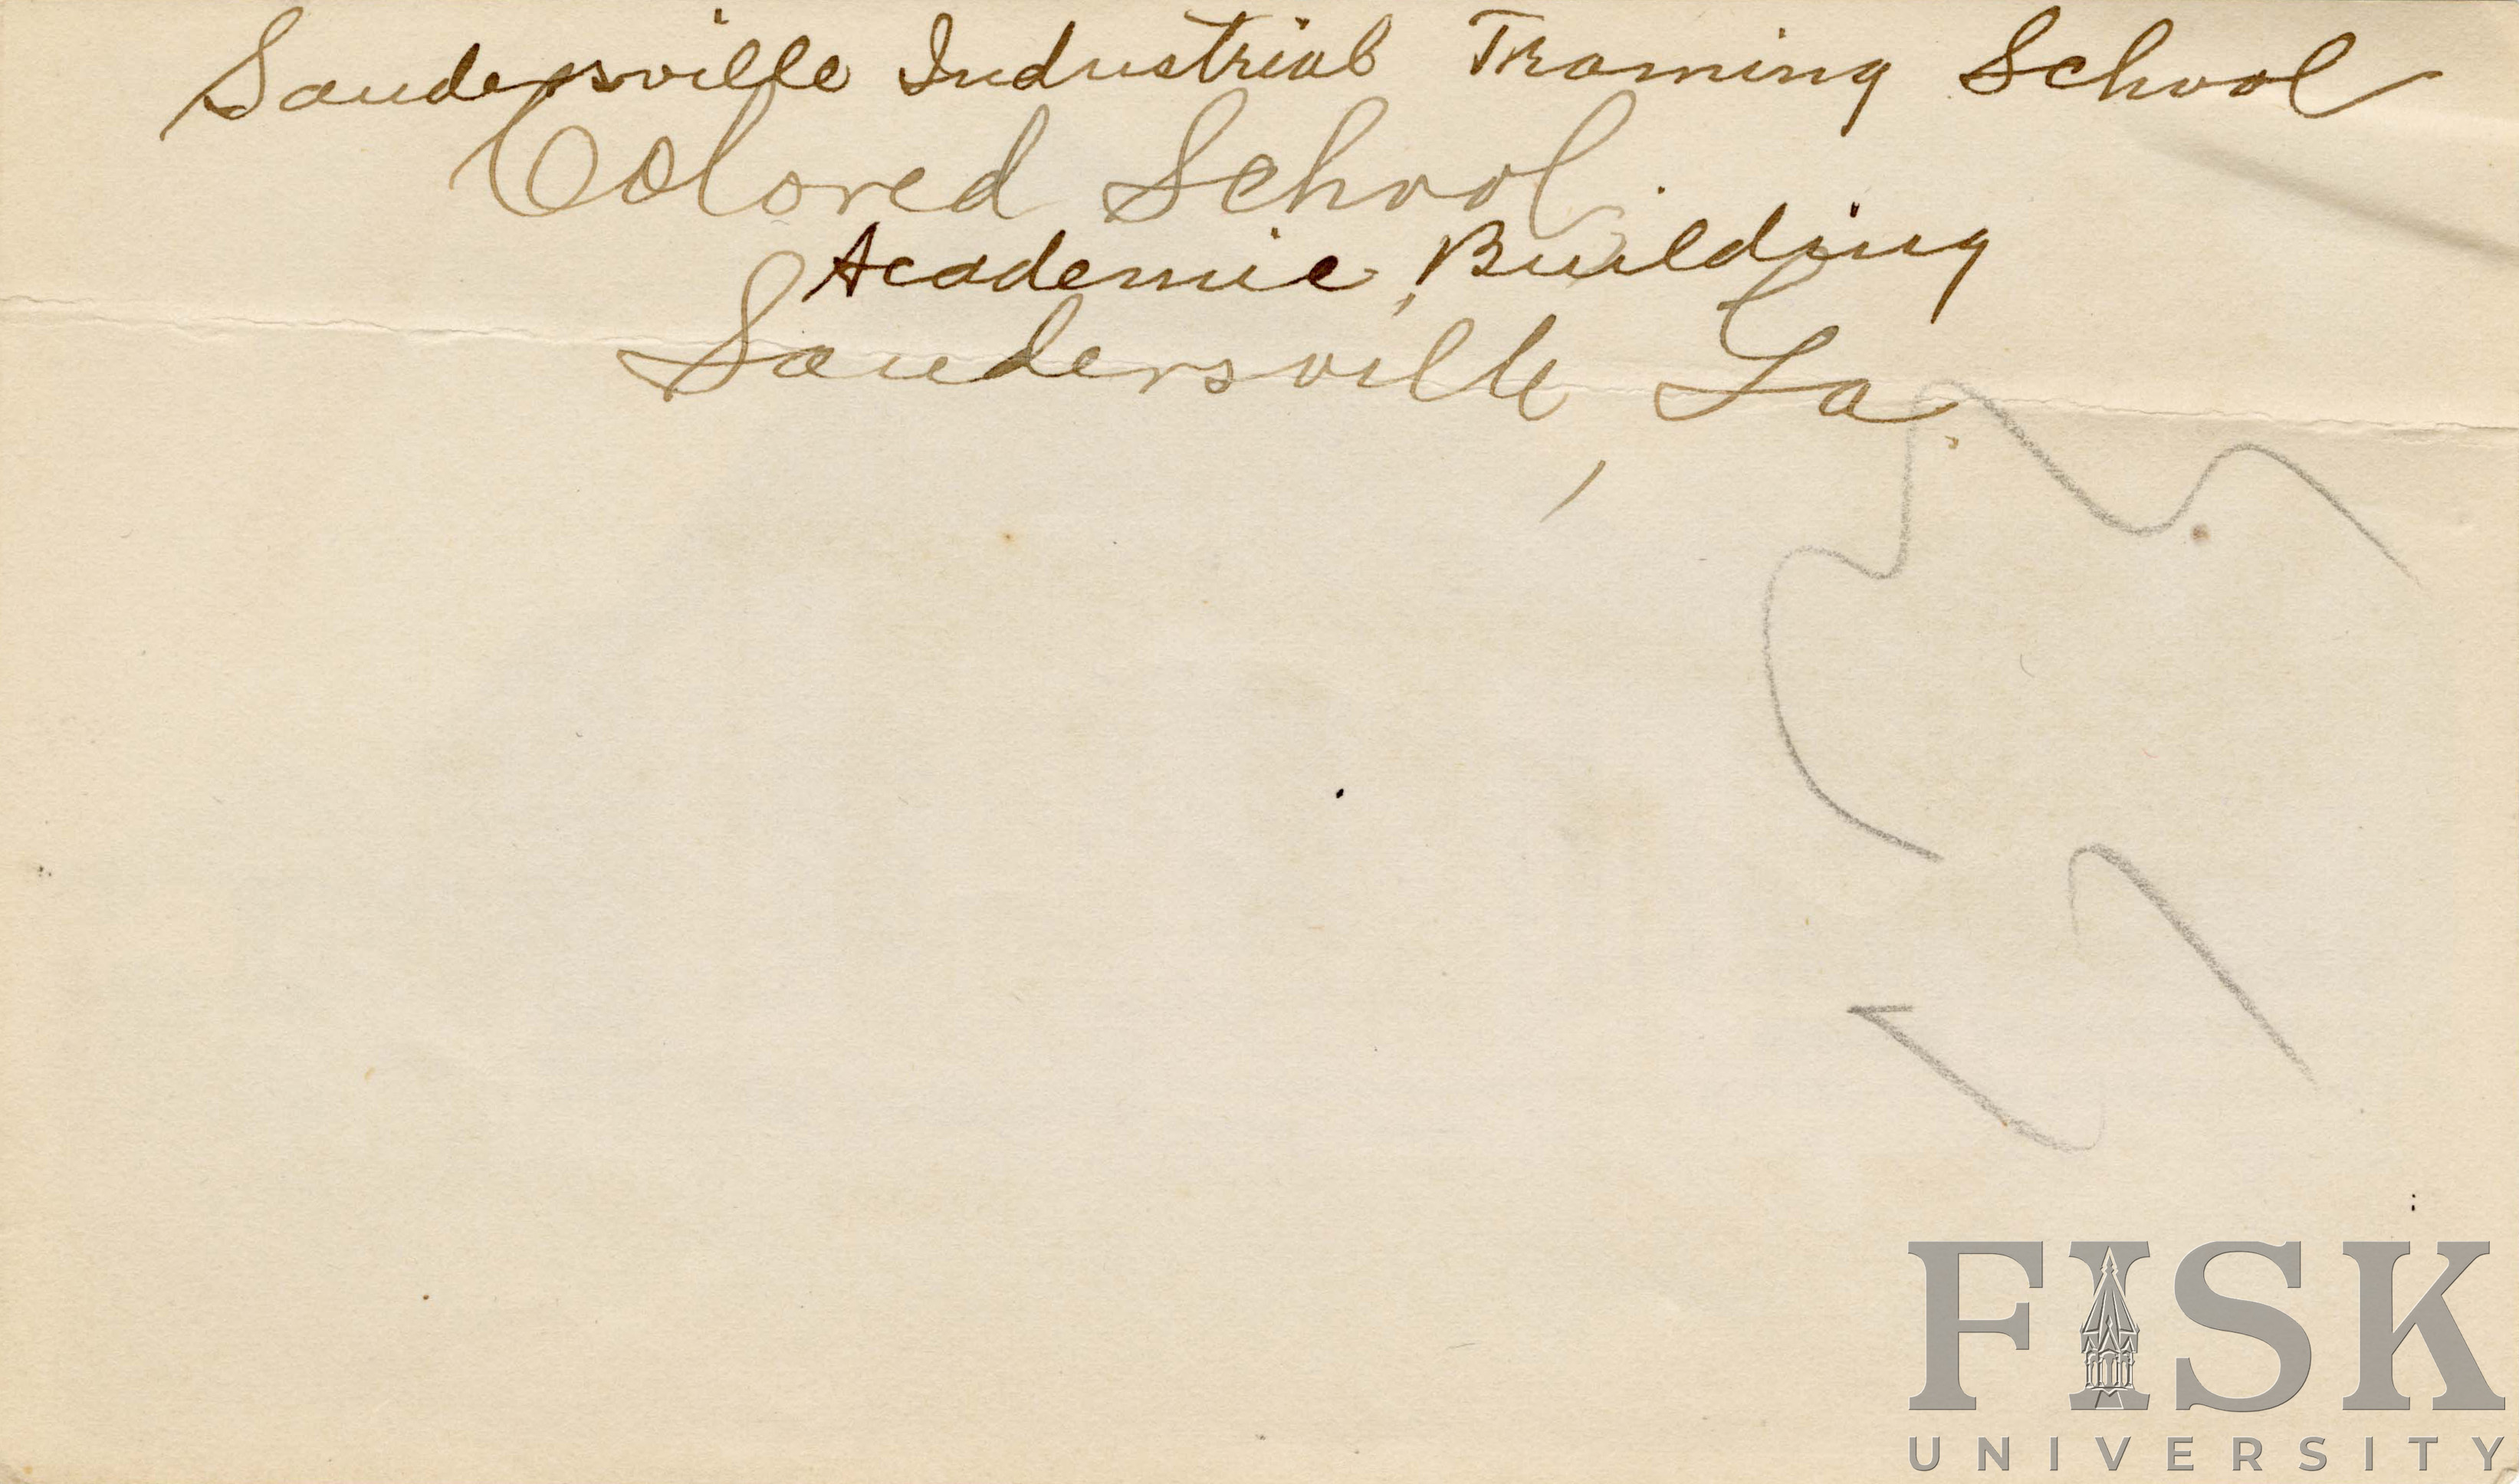 Sandersville Industrial Training School
Colored School
Academic Building
Sandersville, Ga.
FISK
UNIVERSITY